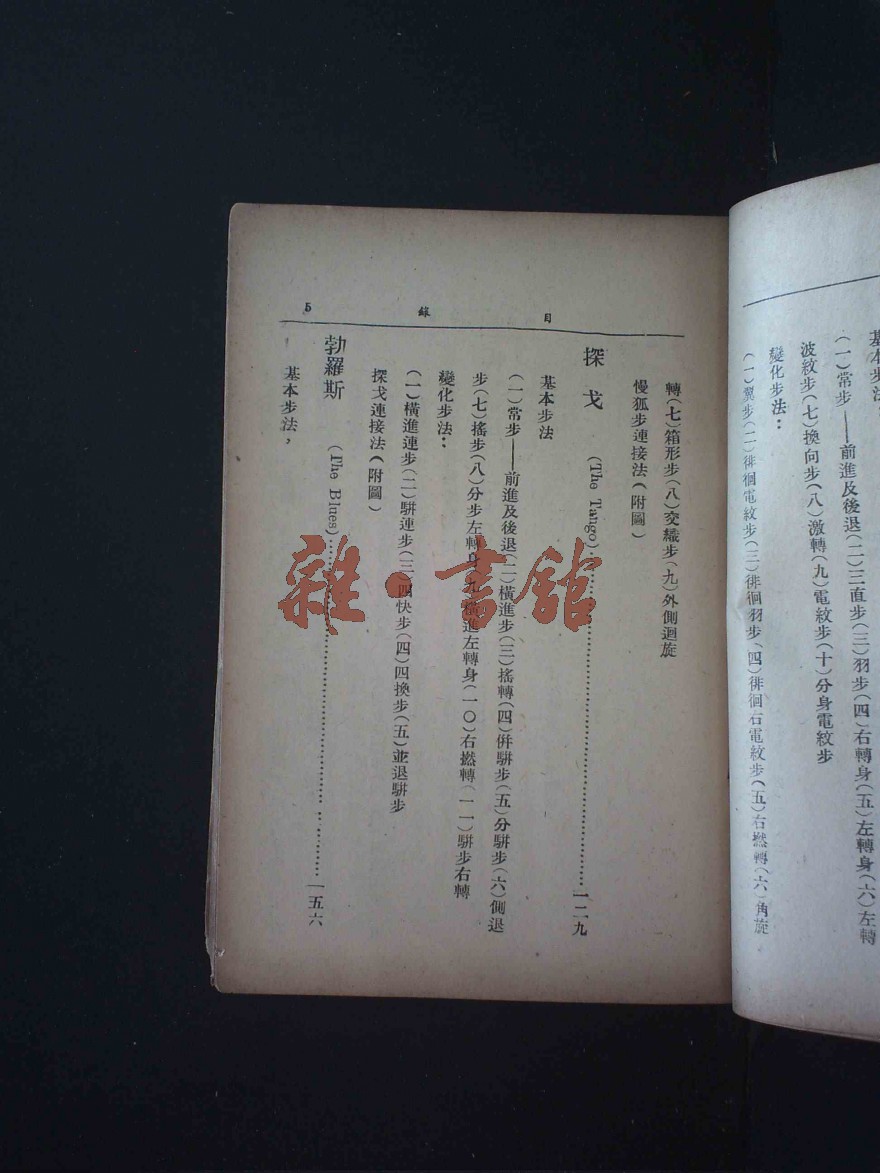 基本步法：
（一）常步——前進及後退（二）三直步（三）羽步（四）右轉身（五）左轉身（六）左轉
波紋步（七）換向步（八）激轉（九）電紋步（十）分身電紋步
變化步法：
（一）翼步（二）徘徊電紋步（三）徘徊羽步（四）徘徊右電紋步（五）右撚轉（六）角旋
目 錄 5
轉（七）箱形步（八）交織步（九）外側迴旋
慢狐步連接法（附圖）
探戈 （The Tango）……一二九
基本步法
（一）常步——前進及後退（二）橫進步（三）搖轉（四）併騈步（五）分騈步（六）側退
步（七）搖步（八）分步左轉身（九）橫進左轉身（一〇）右撚轉（一一）騈步右轉
變化步法：
（一）橫進連步（二）騈連步（三）四快步（四）四換步（五）並退騈步
探戈連接法（附圖）
勃羅斯 （The Blues）……一五六
基本步法，
雜·書館